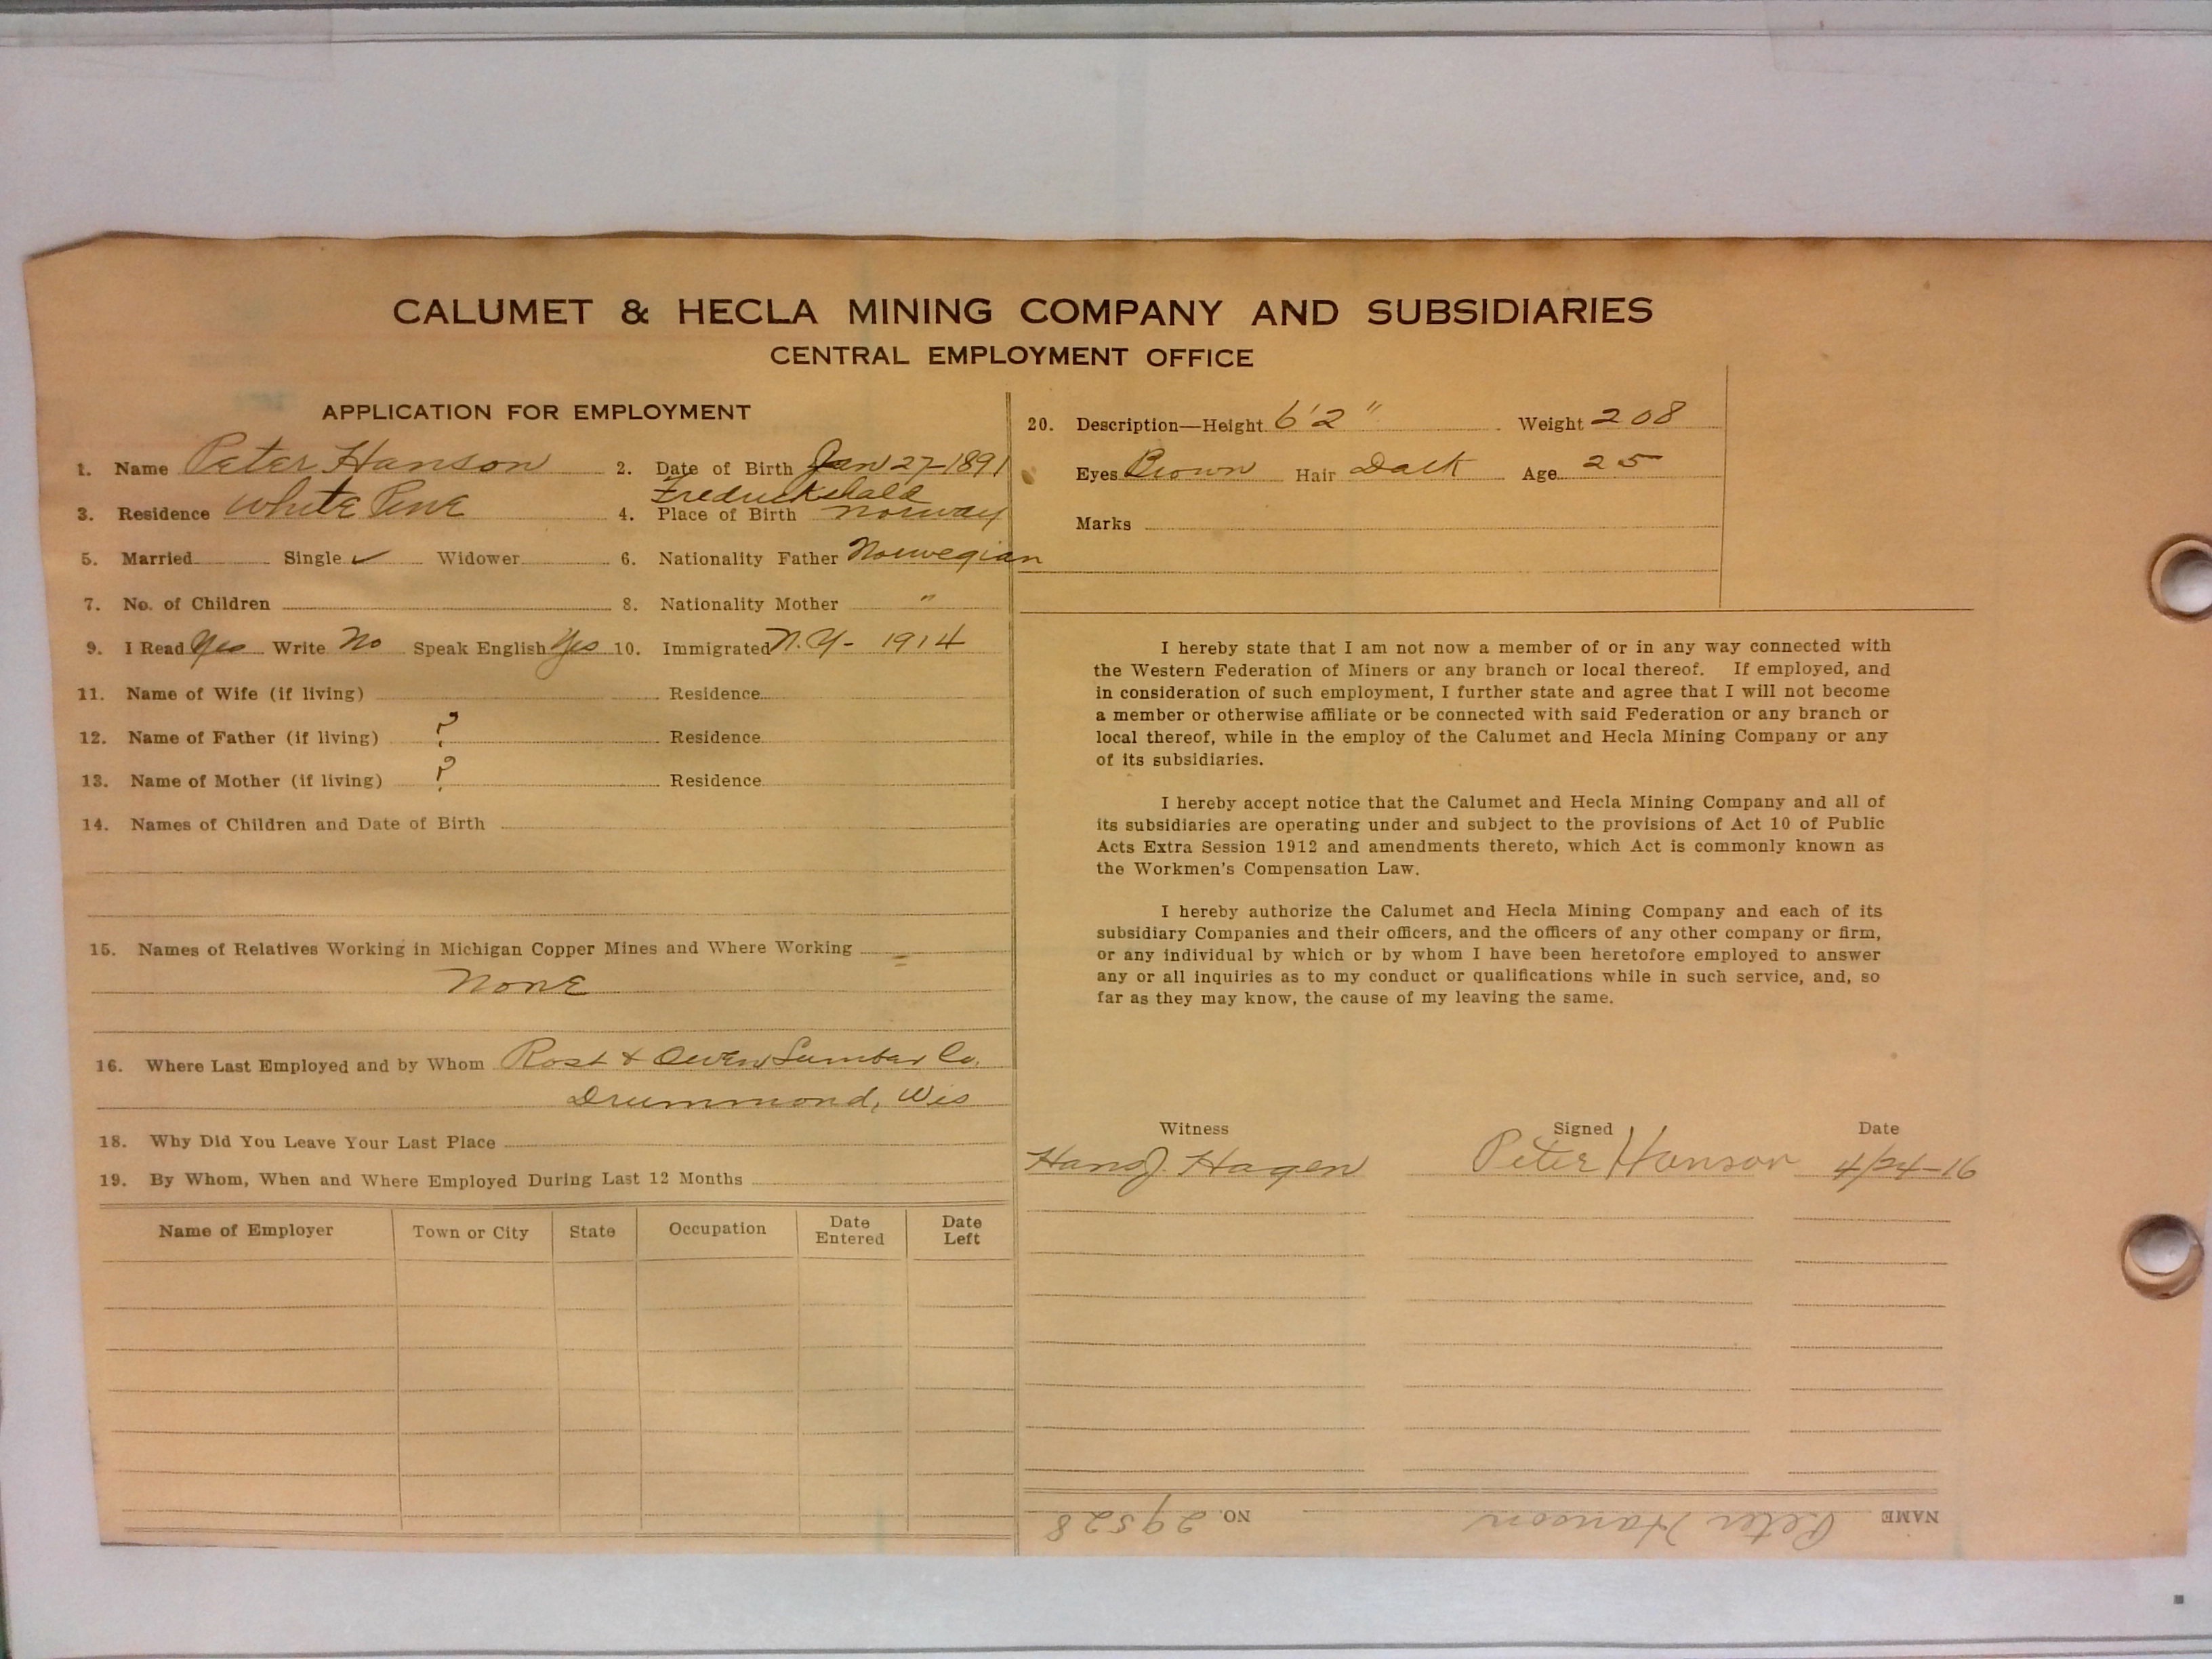 CALUMET & HECLA MINING COMPANY AND SUBSIDIARIES
CENTRAL EMPLOYMENT OFFICE
APPLICATION FOR EMPLOYMENT
1. Name Peter Hanson 2. Date of Birth Jan 27-1891
Fredrickshald
3. Residence White Pine 4. Place of Birth Norway
5. Married Single ✓ Widower 6. Nationality Father Norwegian
7. No. of Children 8. Nationality Mother "
9. I Read Yes Write No Speak English Yes 10. Immigrated N.Y- 1914
11. Name of Wife (if living) Residence
12. Name of Father (if living) ? Residence
13. Name of Mother (if living) ? Residence
14. Names of Children and Date of Birth
15. Names of Relatives Working in Michigan Copper Mines and Where Working =
None
16. Where Last Employed and by Whom Rost & Owen Lumber Co.
Drummond, Wis
18. Why Did You Leave Your Last Place
19. By Whom, When and Where Employed During Last 12 Months
Name of Employer Town or City State Occupation Date Entered Date Left
20. Description—Height 6'2" Weight 208
Eyes Brown Hair Dark Age 25
Marks
I hereby state that I am not now a member of or in any way connected with
the Western Federation of Miners or any branch or local thereof. If employed, and
in consideration of such employment, I further state and agree that I will not become
a member or otherwise affiliate or be connected with said Federation or any branch or
local thereof, while in the employ of the Calumet and Hecla Mining Company or any
of its subsidiaries.
I hereby accept notice that the Calumet and Hecla Mining Company and all of
its subsidiaries are operating under and subject to the provisions of Act 10 of Public
Acts Extra Session 1912 and amendments thereto, which Act is commonly known as
the Workmen's Compensation Law.
I hereby authorize the Calumet and Hecla Mining Company and each of its
subsidiary Companies and their officers, and the officers of any other company or firm,
or any individual by which or by whom I have been heretofore employed to answer
any or all inquiries as to my conduct or qualifications while in such service, and, so
far as they may know, the cause of my leaving the same.
Witness Signed Date
Hans J. Hagen Peter Hanson 4/24-16
NAME Peter Hanson NO. 29528